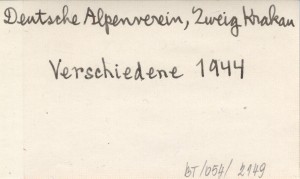 Deutsche Alpenverein, Zweig Krakau
Verschiedene 1944
BT/054/ 2149